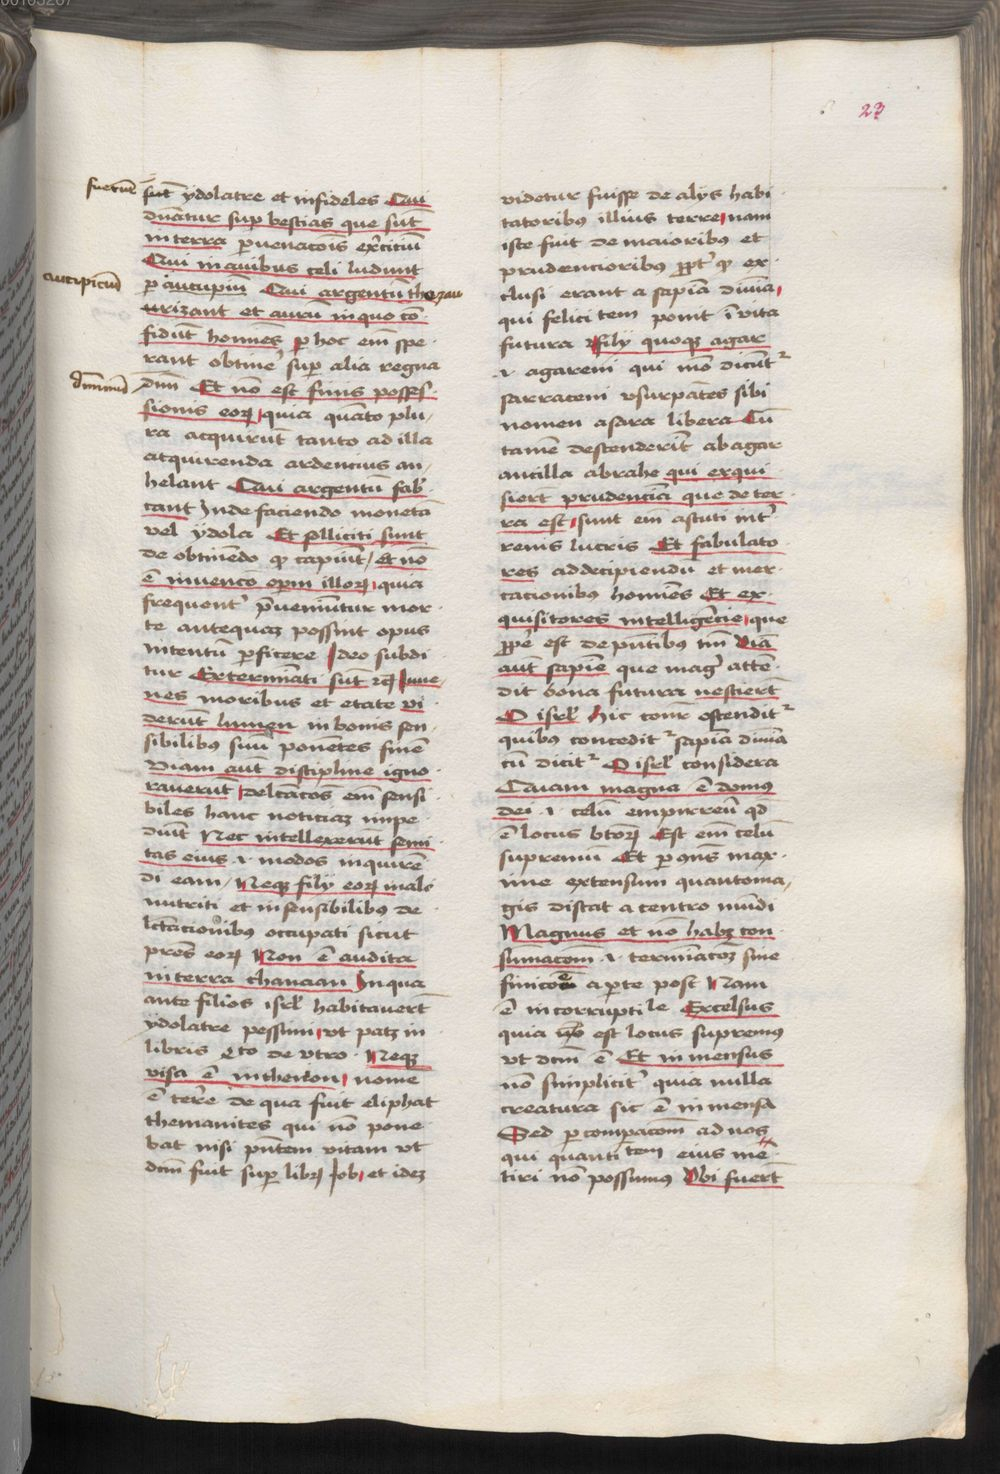 23
fuerunt sut ydolatre et infideles Qui
dnantur sup bestias que sut
in terra p venacois exercitiu
Qui in avibus celi ludunt
aucupicium p aucupiu Qui argentu thezau
urizant et auru in quo co
fidut homines p hoc em spe
rant obtine sup alia regna
dominium dnm Et no est finis posses
sionis eor quia quato plu
ra acquirut tanto ad illa
acquirenda ardencius an
helant Qui argentu fab
cant Inde faciendo moneta
vel ydola Et solliciti sunt
de obtinedo qd capiut Et no
e invencio operu illor quia
frequent pveniuntur mor
te antequaz possint opus
intentu pficere Ideo subdi
tur Exterminati sut Iuve
nes moribus et etate vi
derut lumen in bonis sen
sibilibus suu ponetes fine
Viam aut discipline igno
raverut delectacos em sensi
biles hanc noticiaz impe
diut Nec intellexerut semi
tas eius i modos inquire
di eam Neqz filij eor male
nutriti et in sensibilibus de
lectacionibus occupati sicut
pres eor Non e audita
in terra chanaan In qua
ante filios isrl habitavert
ydolatre pessimi vt patz in
libris de vtro Neqz
visa e in theman nome
e terre de qua fuit eliphat
themanites qui no pone
bat nisi pntem vitam vt
dcm fuit sup libr Job et idez
videtur fuisse de alijs habi
tatoribus illius terre nam
iste fuit de maioribus et
prudencioribus ppt qd ex
clusi erant a sapia divina
qui felicitatem ponit i vita
futura filij quoqz agar
i agareni qui mo dicut
sarraceni vsurpates sibi
nomen a sara libera Cu
tame descenderit ab agar
ancilla abrahe qui exqui
siert prudencia que de ter
ra est sunt em astuti in ter
renis lucris Et fabulato
res ad decipiendu et mer
cacionibus homines Et ex
quisitores intelligecie que
ppe est de pntibus tm Via
aut sapie que mag atte
dit bona futura nesciert
O isrl Hic conr ostendit
quibus concedit sapia divina
cu dicit O isrl considera
Quam magna e domus
dei i celu empirreu qd
e locus btor Est em celu
supremu Et p qns max
ime extensum quanto ma
gis distat a centro mundi
Magnus et no habz con
sumacom i terminacoz sine
finicoe a parte post Nam
e incorruptile Excelsus
quia est locus supremus
vt dcm e Et in mensus
no simplicit quia nulla
creatura sic e in mensa
Sed p compacom ad nos
qui quantitatem eius me
tiri no possumus Ibi fuert